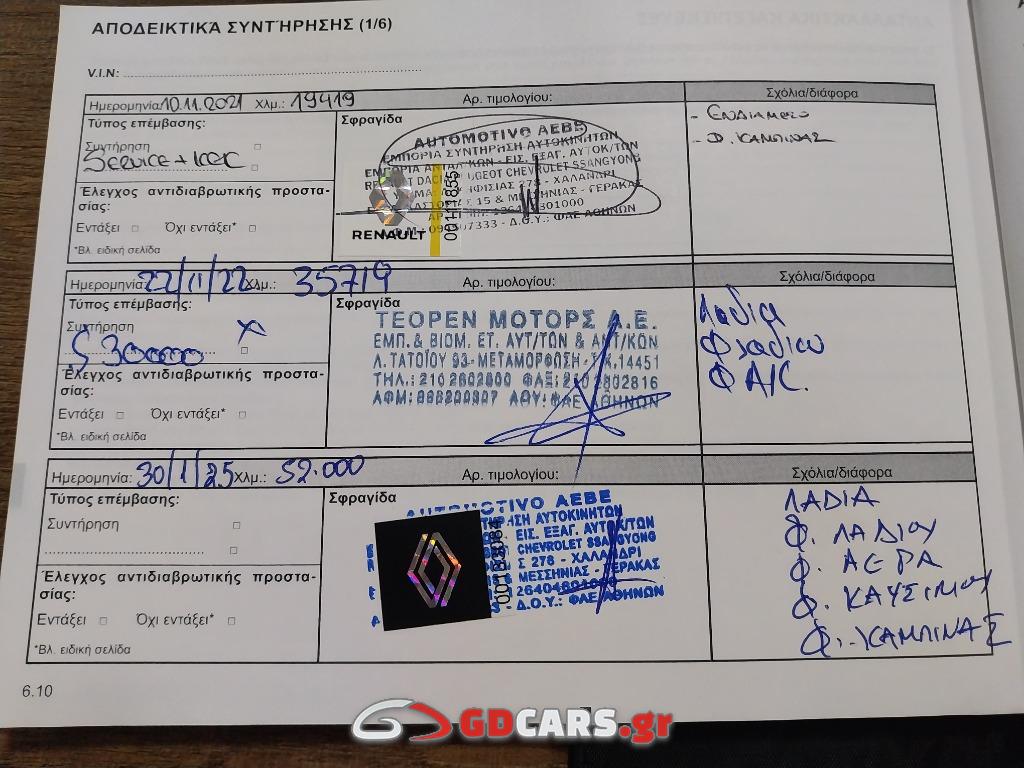 ΑΠΟΔΕΙΚΤΙΚΆ ΣΥΝΤΉΡΗΣΗΣ (1/6)
V.I.N:
Ημερομηνία 10.11.2021 Χλμ.: 19419 Αρ. τιμολογίου: Σχόλια/διάφορα
Τύπος επέμβασης:
Συντήρηση
Service +
Έλεγχος αντιδιαβρωτικής προστα-
σίας:
Εντάξει Όχι εντάξει*
*Βλ. ειδική σελίδα
Σφραγίδα
AUTOMOTIVO ΑΕΒΕ
ΕΜΠΟΡΙΑ ΣΥΝΤΗΡΗΣΗ ΑΥΤΟΚΙΝΗΤΩΝ
ΕΜΠΟΡΙΑ ΑΝΤΑΛ/ΚΩΝ - ΕΙΣ. ΕΞΑΓ. ΑΥΤΟΚ/ΤΩΝ
GEOT CHEVROLET SSANGYONG
ΗΦΙΣΙΑΣ 278 - ΧΑΛΑΝΔΡΙ
15 & ΜΕΣΣΗΝΙΑΣ - ΓΕΡΑΚΑΣ
301000
7333 - Δ.Ο.Υ.: ΦΑΕ ΑΘΗΝΩΝ
RENAULT
00111855
- ΕΝΔΙΑΜΕΣΟ
- Φ. ΚΑΜΠΙΝΑΣ
Ημερομηνία 22/11/22 Χλμ.: 35719 Αρ. τιμολογίου: Σχόλια/διάφορα
Τύπος επέμβασης:
Συντήρηση x
S 30000
Έλεγχος αντιδιαβρωτικής προστα-
σίας:
Εντάξει Όχι εντάξει*
*Βλ. ειδική σελίδα
Σφραγίδα
ΤΕΟΡΕΝ ΜΟΤΟΡΣ Α.Ε.
ΕΜΠ.& ΒΙΟΜ. ΕΤ. ΑΥΤ/ΤΩΝ & ΑΝΤ/ΚΩΝ
Λ.ΤΑΤΟΪΟΥ 93-ΜΕΤΑΜΟΡΦΩΣΗ-Τ.Κ.14451
ΤΗΛ.: 210 2802000 ΦΑΞ: 210 2802816
ΑΦΜ: ΔΟΥ: ΦΑΕ ΑΘΗΝΩΝ
Λαδια
Φ λαδιου
Φ A/C.
Ημερομηνία: 30/1/25 Χλμ.: 52.000 Αρ. τιμολογίου: Σχόλια/διάφορα
Τύπος επέμβασης:
Συντήρηση
Έλεγχος αντιδιαβρωτικής προστα-
σίας:
Εντάξει Όχι εντάξει*
*Βλ. ειδική σελίδα
Σφραγίδα
AUTOMOTIVO ΑΕΒΕ
ΗΣΗ ΑΥΤΟΚΙΝΗΤΩΝ
ΕΙΣ. ΕΞΑΓ. ΑΥΤΟΚ/ΤΩΝ
CHEVROLET SSANGYONG
Σ 278 - ΧΑΛΑΝΔΡΙ
& ΜΕΣΣΗΝΙΑΣ - ΓΕΡΑΚΑΣ
- Δ.Ο.Υ.: ΦΑΕ ΑΘΗΝΩΝ
ΛΑΔΙΑ
Φ. ΛΑΔΙΟΥ
Φ. ΑΕΡΑ
Φ. ΚΑΥΣΙΜΟΥ
Φ. ΚΑΜΠΙΝΑΣ
6.10
GDCARS.gr